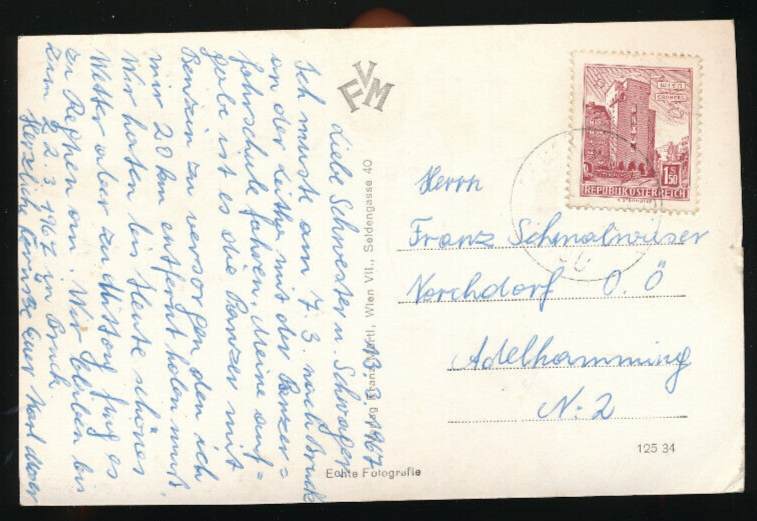 13. 3. 1967
Liebe Schwester u. Schwager
Ich musste am 7. 3. nach Bruck
an der Leitha mit der Panzer=
fahrschule fahren. Meine Auf=
gabe ist es die Panzer mit
Benzin zu versorgen den ich
mir 20 km entfernt holen muß
Wir hatten bis Heute schönes
Wetter aber zu Mittag fing es
zu Regnen an. Wir bleiben bis
zum 22. 3. 1967 in Bruck
Herzliche Grüße Euer
FVM
Wien VII., Seidengasse 40
Echte Fotografie
WIEN
REPUBLIK ÖSTERREICH
1.50
Herrn
Franz Schmalwieser
Vorchdorf O. Ö
Adelhamming
N: 2
125 34